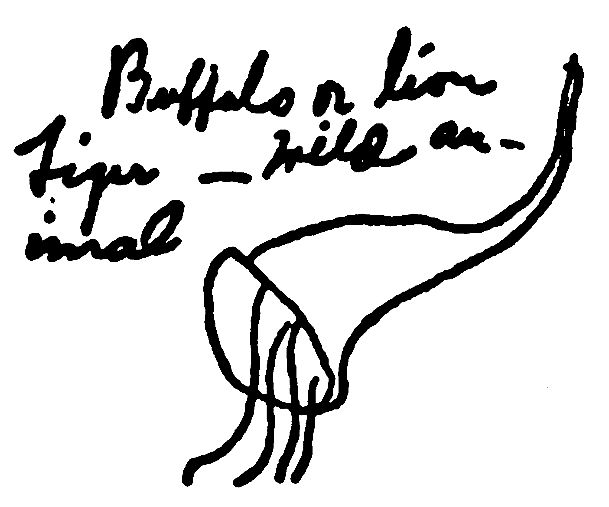 Buffalo or lion
Tiger — wild an-
imal